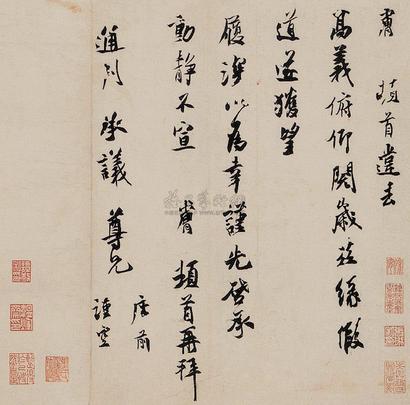 膚 頓首違去
高義俯仰閱歲茲緣假
道遂獲望
履以為幸謹先啓承
動靜不宣 膚 頓首再拜
通判承議尊兄 座前
謹空